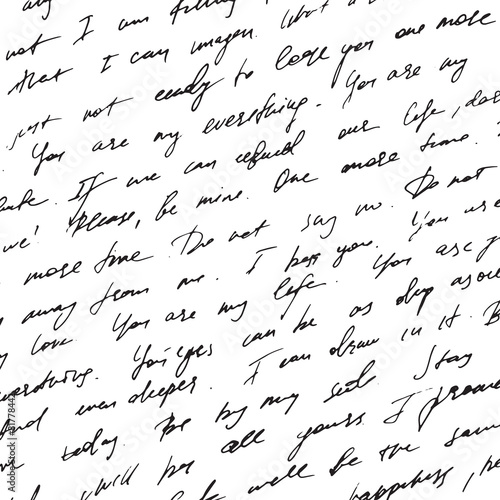 not I am
that I can imagen. What
just not ready to lose you one more
You are my everything. You are my
If we can rebuild our life, dar
we! Please, be mine. One more time.
more time. Do not say no. Do not
away from me. I beg you. You are
love. You are my life. You are
everything. Your eyes can be as deep as
and even deeper. I can draw in it. B
today. Be by my side. Stay
will be all yours. I promi
well be the same
happiness,